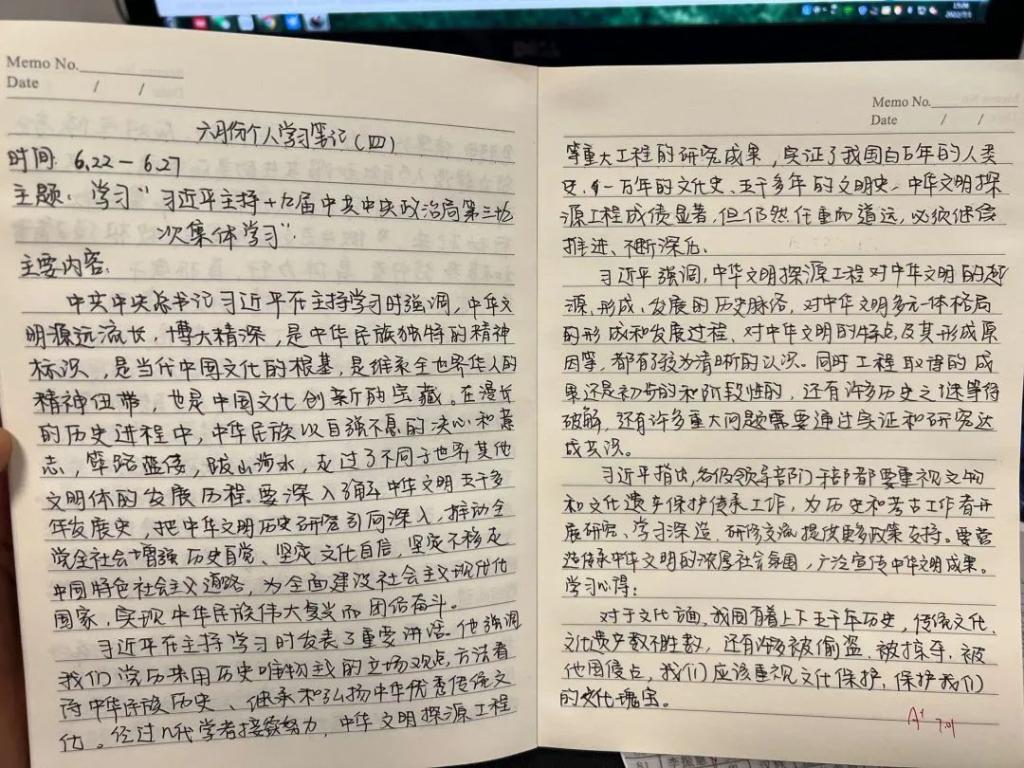 15:06
2022/7/1
DELL
Memo No.
Date / /
六月份个人学习笔记(四)
时间: 6.22－6.27
主题: 学习"习近平主持十九届中共中央政治局第三十九
次集体学习"
主要内容:
中共中央总书记习近平在主持学习时强调,中华文
明源远流长,博大精深,是中华民族独特的精神
标识,是当代中国文化的根基,是维系全世界华人的
精神纽带,也是中国文化创新的宝藏。在漫长
的历史进程中,中华民族以自强不息的决心和意
志,筚路蓝缕,跋山涉水,走过了不同于世界其他
文明体的发展历程。要深入了解中华文明五千多
年发展史,把中华文明历史研究引向深入,推动全
党全社会增强历史自觉、坚定文化自信,坚定不移走
中国特色社会主义道路,为全面建设社会主义现代化
国家,实现中华民族伟大复兴而团结奋斗。
习近平在主持学习时发表了重要讲话。他强调
我们党历来用历史唯物主义的立场观点,方法看
待中华民族历史、继承和弘扬中华优秀传统文
化。经过几代学者接续努力,中华文明探源工程
Memo No.
Date / /
等重大工程的研究成果,实证了我国百万年的人类
史、一万年的文化史、五千多年的文明史。中华文明探
源工程成绩显著,但仍然任重而道远,必须继续
推进、不断深化。
习近平强调,中华文明探源工程对中华文明的起
源、形成、发展的历史脉络,对中华文明多元一体格局
的形成和发展过程,对中华文明的特点及其形成原
因等,都有了较为清晰的认识。同时工程取得的成
果还是初步的和阶段性的,还有许多历史之谜等待
破解,还有许多重大问题需要通过实证和研究达
成共识。
习近平指出,各级领导部门干部都要重视文物
和文化遗产保护传承工作,为历史和考古工作者开
展研究、学习深造,研修交流提供更多政策支持。要营
造传承中华文明的浓厚社会氛围,广泛宣传中华文明成果。
学习心得:
对于文化方面,我国有着上下五千年历史,传统文化、
文化遗产数不胜数,还有许多被偷盗、被掠夺、被
他国侵占,我们应该重视文化保护、保护我们
的文化瑰宝。
A+ 7.01